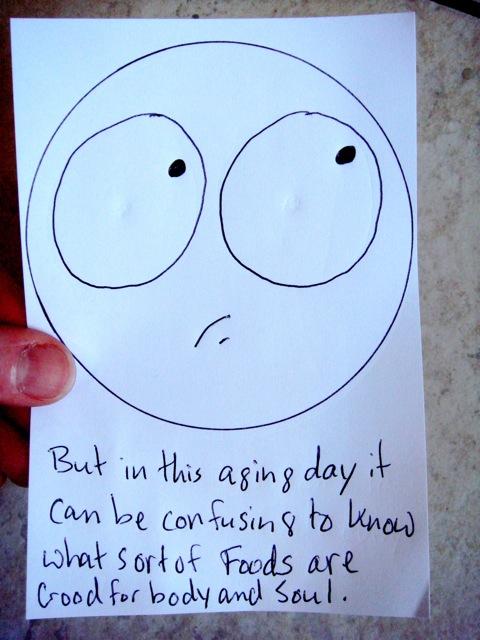 But in this aging day it
can be confusing to know
what sort of Foods are
Good for body and Soul.